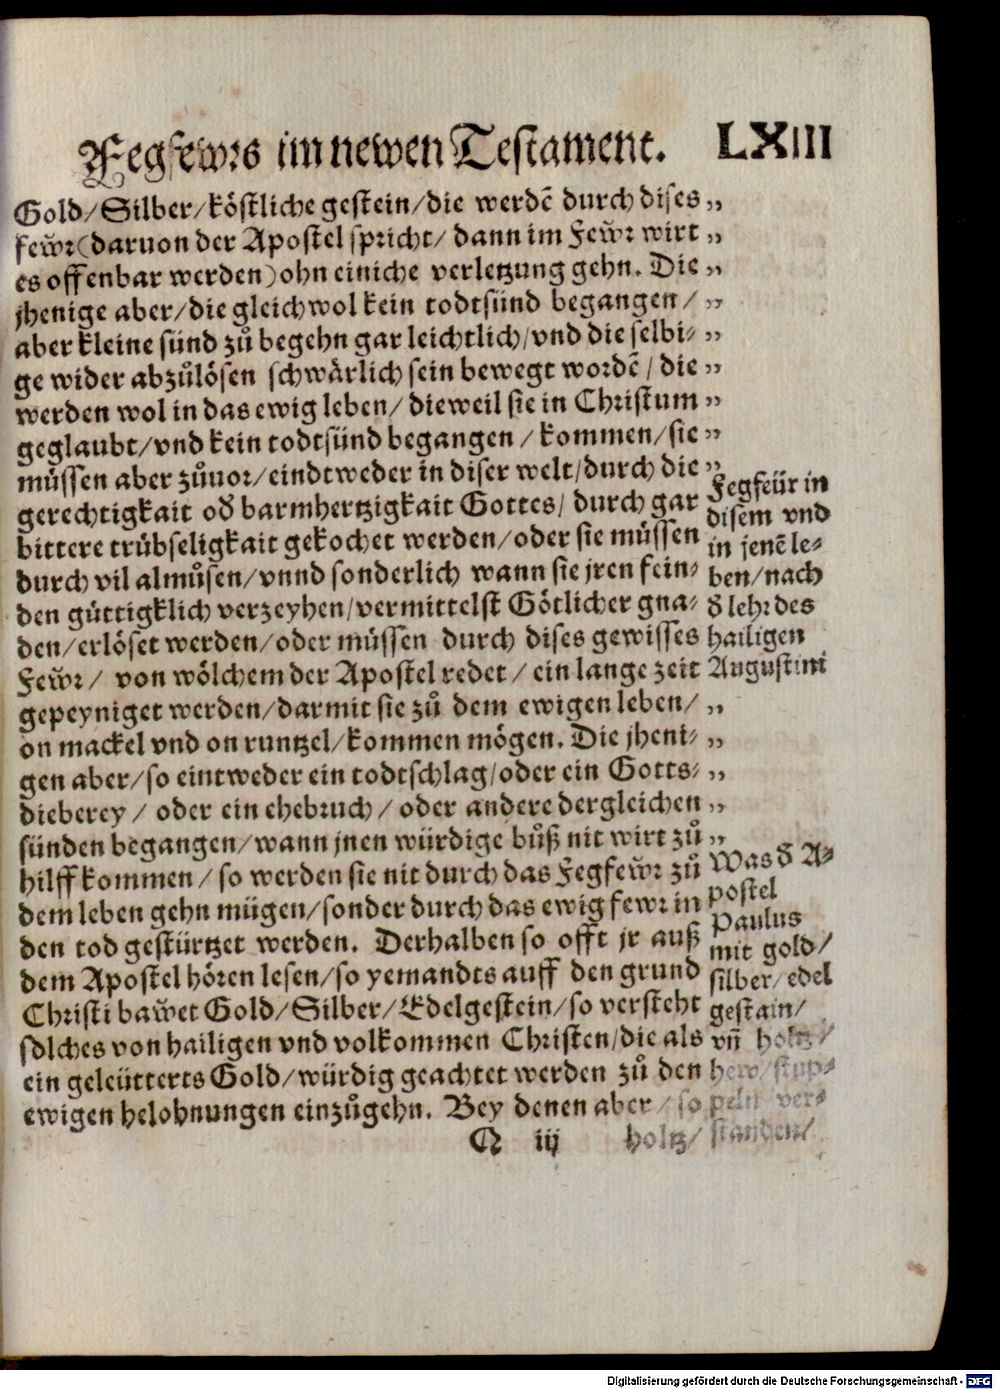 Fegfewrs im newen Testament. LXIII
Gold/Silber/köstliche gestein/die werdē durch dises „
fewr(daruon der Apostel spricht/ dann im Fewr wirt „
es offenbar werden)ohn einiche verletzung gehn. Die „
jhenige aber/die gleichwol kein todtsünd begangen/ „
aber kleine sünd zů begehn gar leichtlich/vnd die selbi- „
ge wider abzůlösen schwärlich sein bewegt wordē/ die „
werden wol in das ewig leben/ dieweil sie in Christum „
geglaubt/vnd kein todtsünd begangen/kommen/sie „
müssen aber zůuor/eindtweder in diser welt/durch die „
gerechtigkait oď barmhertzigkait Gottes/ durch gar
bittere trübseligkait gekochet werden/oder sie müssen
durch vil almůsen/vnnd sonderlich wann sie jren fein-
den güttigklich verzeyhen/vermittelst Götlicher gna-
den/erlöset werden/oder müssen durch dises gewisses
Fewr/ von wölchem der Apostel redet/ein lange zeit
gepeyniget werden/darmit sie zů dem ewigen leben/ „
on mackel vnd on runtzel/kommen mögen. Die jheni- „
gen aber/so eintweder ein todtschlag/oder ein Gotts- „
dieberey/ oder ein ehebruch/ oder andere dergleichen „
sünden begangen/wann jnen würdige bůß nit wirt zů „
hilff kommen/ so werden sie nit durch das Fegfewr zů
dem leben gehn mügen/sonder durch das ewig fewr in
den tod gestürtzet werden. Derhalben so offt jr auß
dem Apostel hören lesen/so yemandts auff den grund
Christi bawet Gold/Silber/Edelgestein/so versteht
solches von hailigen vnd volkommen Christen/die als
ein geleütterts Gold/würdig geachtet werden zů den
ewigen belohnungen einzůgehn. Bey denen aber/so
Q iij holtz/
Fegfeür in
disem vnd
in jenē le-
ben/nach
ď lehr des
hailigen
Augustini
Was ď A-
postel
Paulus
mit gold/
silber/edel
gestain/
vñ holtz/
hew/stup-
peln ver-
standen/
Digitalisierung gefördert durch die Deutsche Forschungsgemeinschaft - DFG